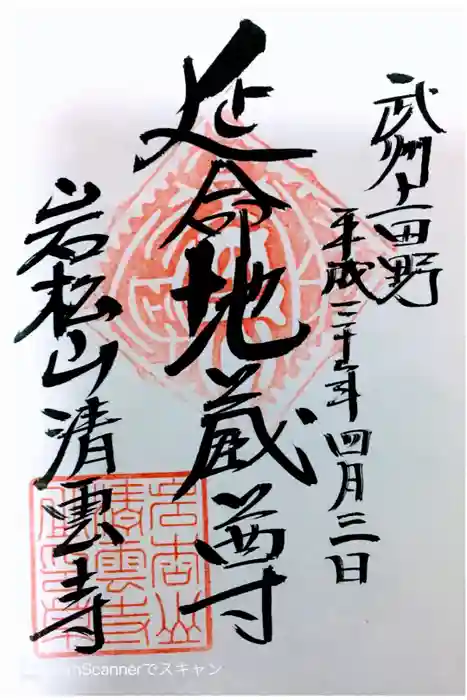 武州上田野
平成三十年四月三日
延命地蔵尊
岩松山清雲寺
Scannerでスキャン